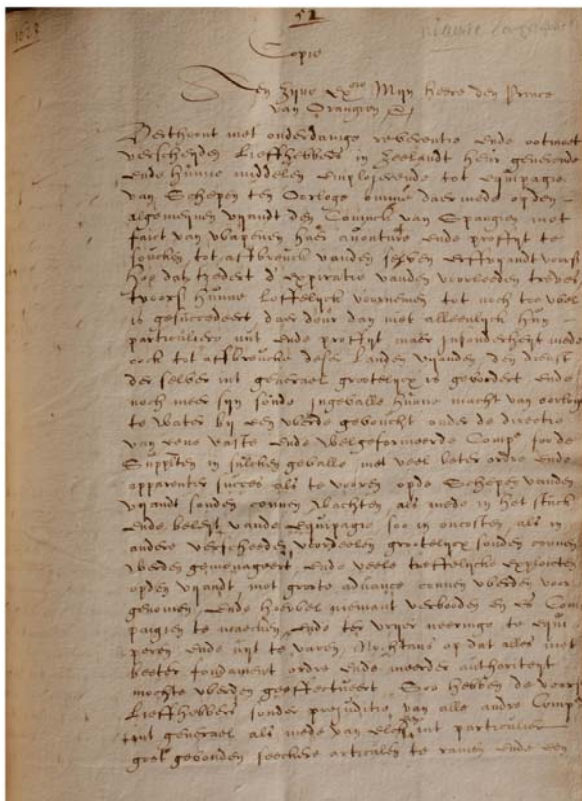 1623
52
Copie
Aen Zijne Ex.cie Mijn heere den Prince
van Orangien &.
Verthoont met onderdanige reverentie ende ootmoet
verscheyden Liefhebbers in Zeelandt heur generende
ende hunne middelen employerende tot equipagie
van Schepen ten Oorloge omme daermede opden
algemeynen vyandt den Coninck van Spangien met
faict van wapenen haer avonture ende proffijt te
soucken tot affbreuck vanden selven Erffvyandt voors.
hoe dat zedert d'expiratie vanden voorleeden treves
t'voors. hunne loffelijck voornemen tot noch toe wel
is gesuccedeert daer deur dan niet alleenlijck hun
particuliere nut ende proffijt maer insonderheyt mede
oock tot affbreucke deser Landen vyanden den dienst
der selver int generael grootelijcx is gevordert ende
noch meer sijn soude ingevalle hunne macht van oorloge
te water bij een werde gevoucht onder de directie
van eene vaste ende welgeformeerde Comp.e sorde
Supp.ten in sulcken gevalle met veel beter ordre ende
apparenter succes als te vooren opde Schepen vanden
vyandt souden connen wachten, als mede in het stuck
ende beleyt vande equipagie soo in oncosten, als in
andere verscheeden voordeelen grootelijcx souden connen
werden gemenageert, ende veele treffelicke exploicten
opden vyandt, met groote advance connen werden voor
genomen, ende hoewel niemant verbooden en is Com
paignien te maecken, ende ter vrijer neeringe te equi
peren ende uijt te varen, Nochtans op dat alles met
beeter fondament ordre ende meerder authoriteyt
mochte werden geeffectueert, Soo hebben de voors.
Liefhebbers sonder prejuditie van alle andre Comp.
int generael als mede van elck int particulier
goet gevonden seeckere articulen te ramen ende een